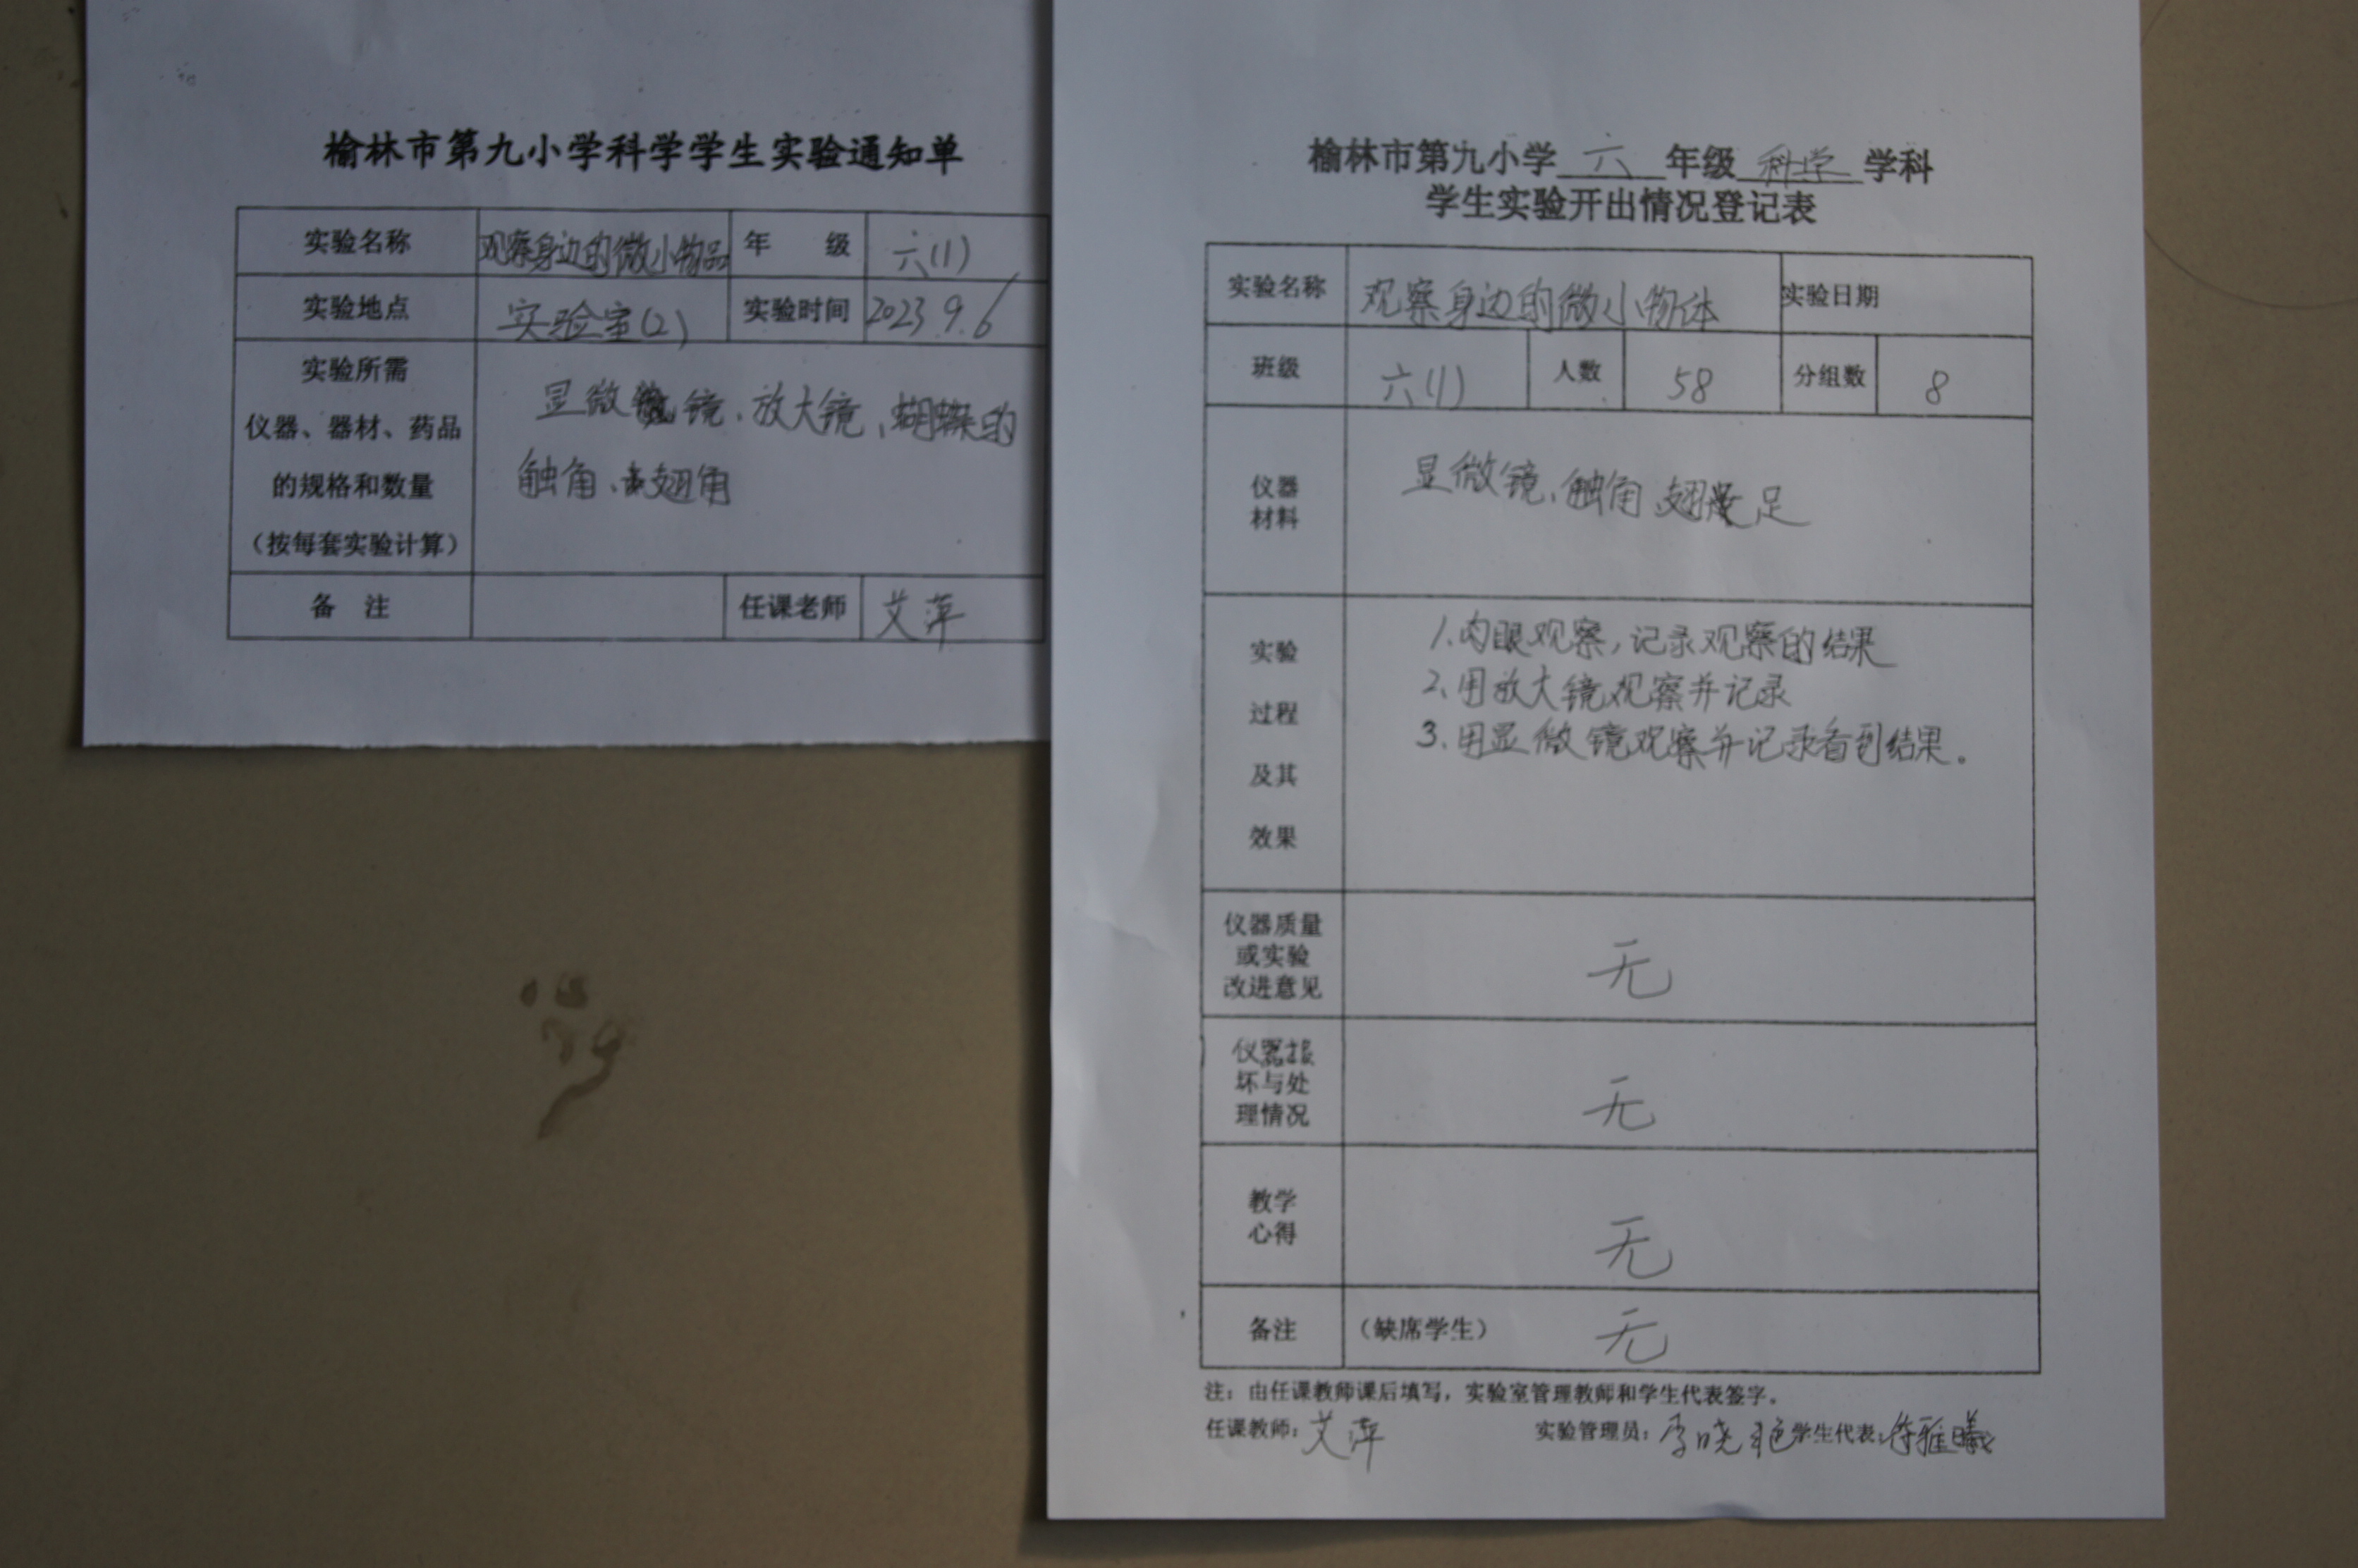 榆林市第九小学科学学生实验通知单
实验名称 观察身边的微小物品 年 级 六(1)
实验地点 实验室(2) 实验时间 2023.9.6
实验所需
仪器、器材、药品
的规格和数量
(按每套实验计算)
显微镜、放大镜、蝴蝶的
触角、翅角
备 注 任课老师 艾萍
榆林市第九小学 六 年级 科学 学科
学生实验开出情况登记表
实验名称 观察身边的微小物体 实验日期
班级 六(1) 人数 58 分组数 8
仪器
材料
显微镜、触角、翅 足
实验
过程
及其
效果
1.肉眼观察,记录观察的结果
2、用放大镜观察并记录
3、用显微镜观察并记录看到结果。
仪器质量
或实验
改进意见
无
仪器报
坏与处
理情况
无
教学
心得
无
备注 (缺席学生) 无
注:由任课教师课后填写,实验室管理教师和学生代表签字。
任课教师:艾萍 实验管理员:李晓艳 学生代表: 雅曦